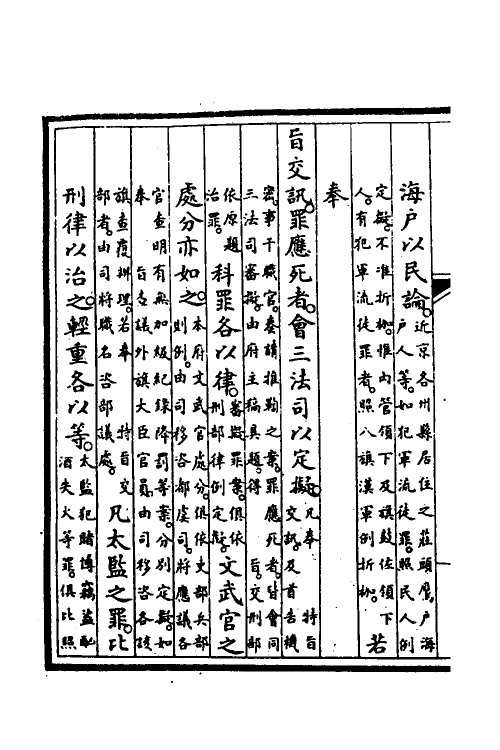 海戶以民論近京各州縣居住之莊頭鷹戶海
戶人等如犯軍流徒罪照民人例
定擬不准折枷惟內管領下及旗鼓佐領下
人有犯軍流徒罪者照八旗漢軍例折枷若
奉
旨交訊罪應死者會三法司以定擬凡奉特旨
交訊及首告機
密事干職官奏請推勘之案罪應死者皆會同
三法司審擬由府主稿具題得旨交刑部
依原題
治罪科罪各以律審擬罪案俱依
刑部律例定擬文武官之
處分亦如之本府文武官處分俱依吏部兵部
則例由司移咨都虞司將應議各
官查明有無加級紀錄降罰等案分別定擬如
奉旨查議外旗大臣官員由司移咨各該
旗查覆辦理若奉特旨交
部者由司將職名咨部議處凡太監之罪比
刑律以治之輕重各以等太監犯賭博竊盜酗
酒失火等罪俱比照